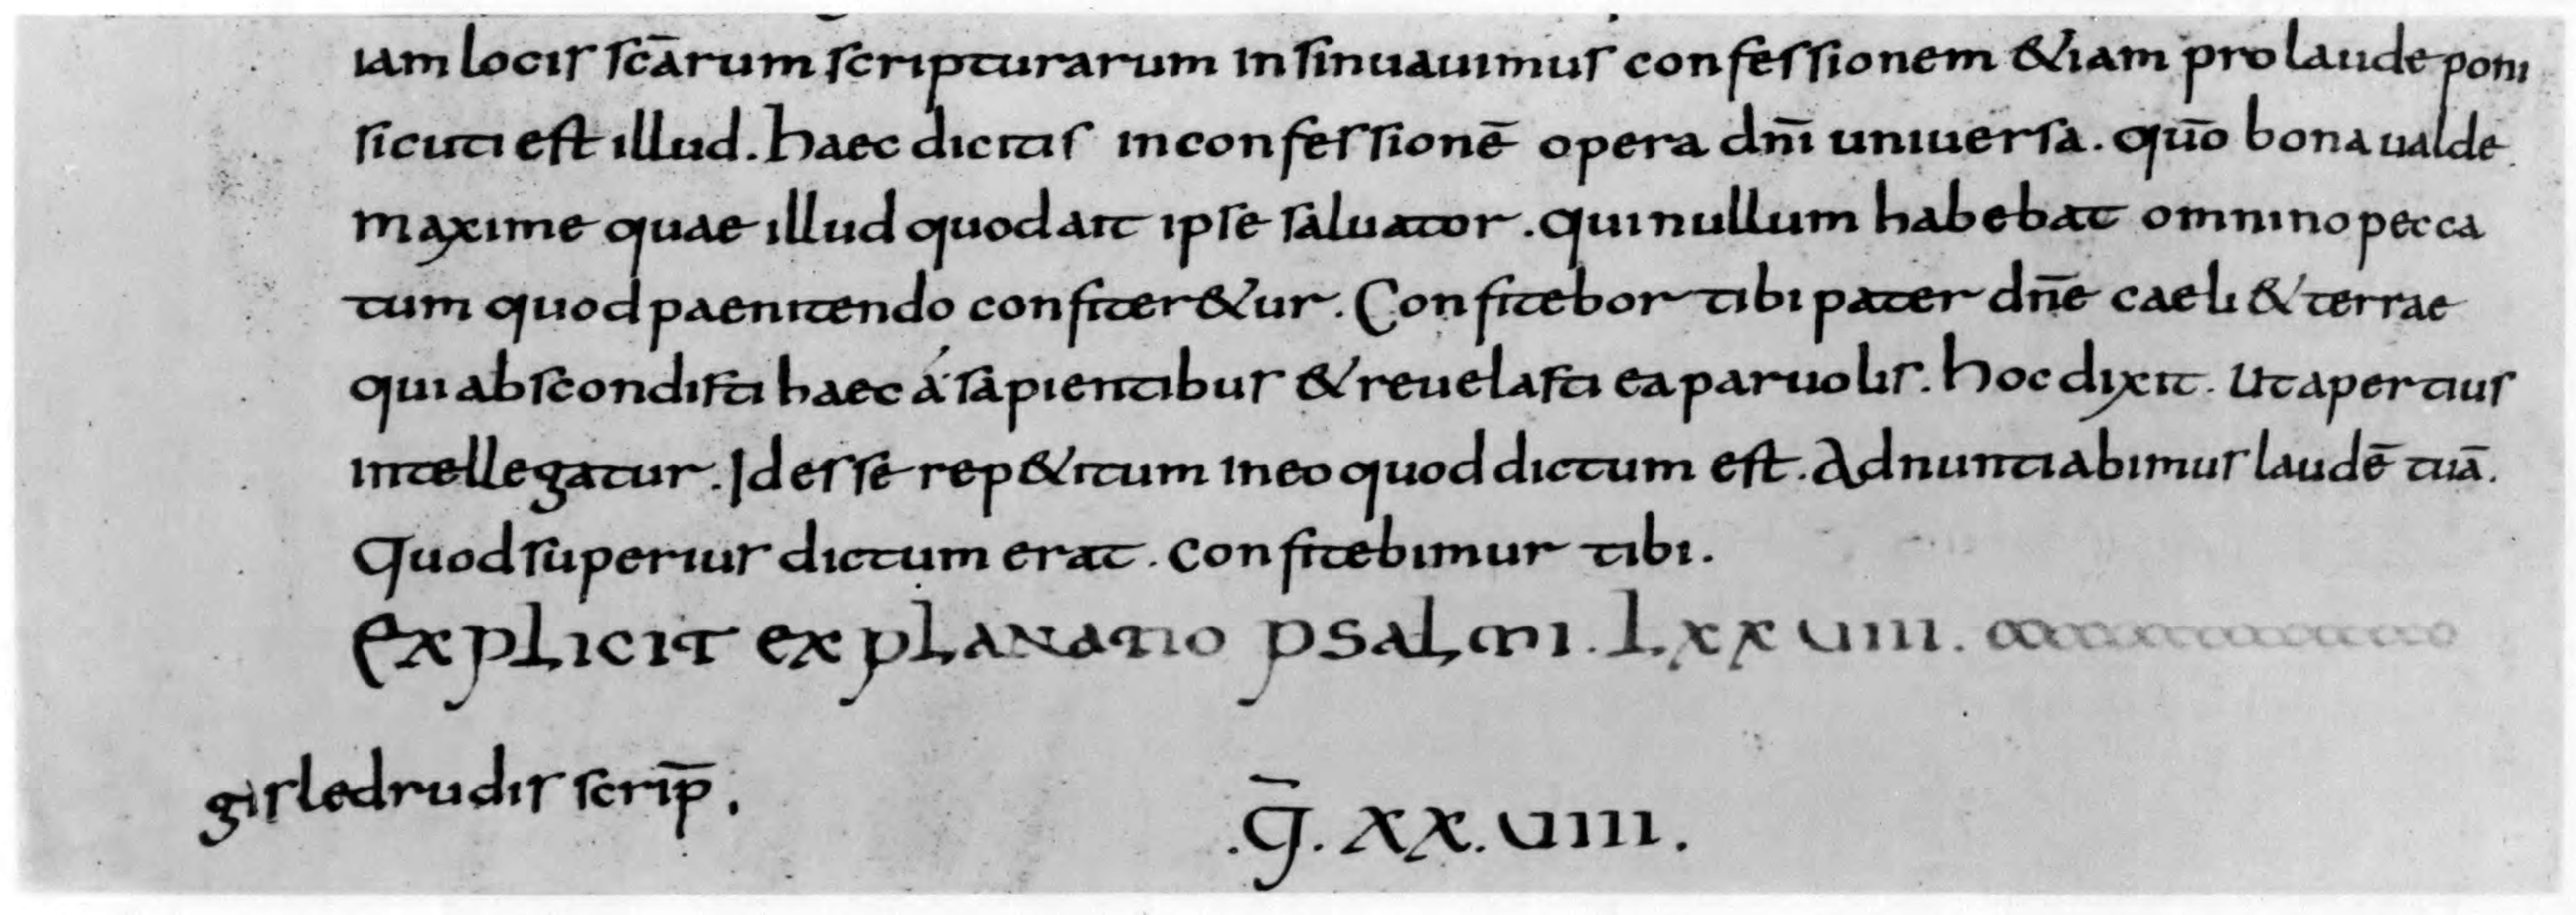 iam locis scārum scripturarum insinuauimus confessionem &iam pro laude poni
sicuti est illud. haec dicitis in confessionē opera dn̄i uniuersa. quō bona ualde
maxime quae illud quod ait ipse saluator. qui nullum habebat omnino pecca
tum quod paenitendo confiter&ur. Confitebor tibi pater dn̄e caeli & terrae
qui abscondisti haec á sapientibus & reuelasti ea paruolis. hoc dixit. Ut apertius
intellegatur. Id esse rep&itum in eo quod dictum est. Adnuntiabimus laudē tuā.
Quod superius dictum erat. confitebimur tibi.
explicit explanatio psalmi. Lxxuiiii.
gisledrudis scrip̄.
.q̄. xx. uiiii.